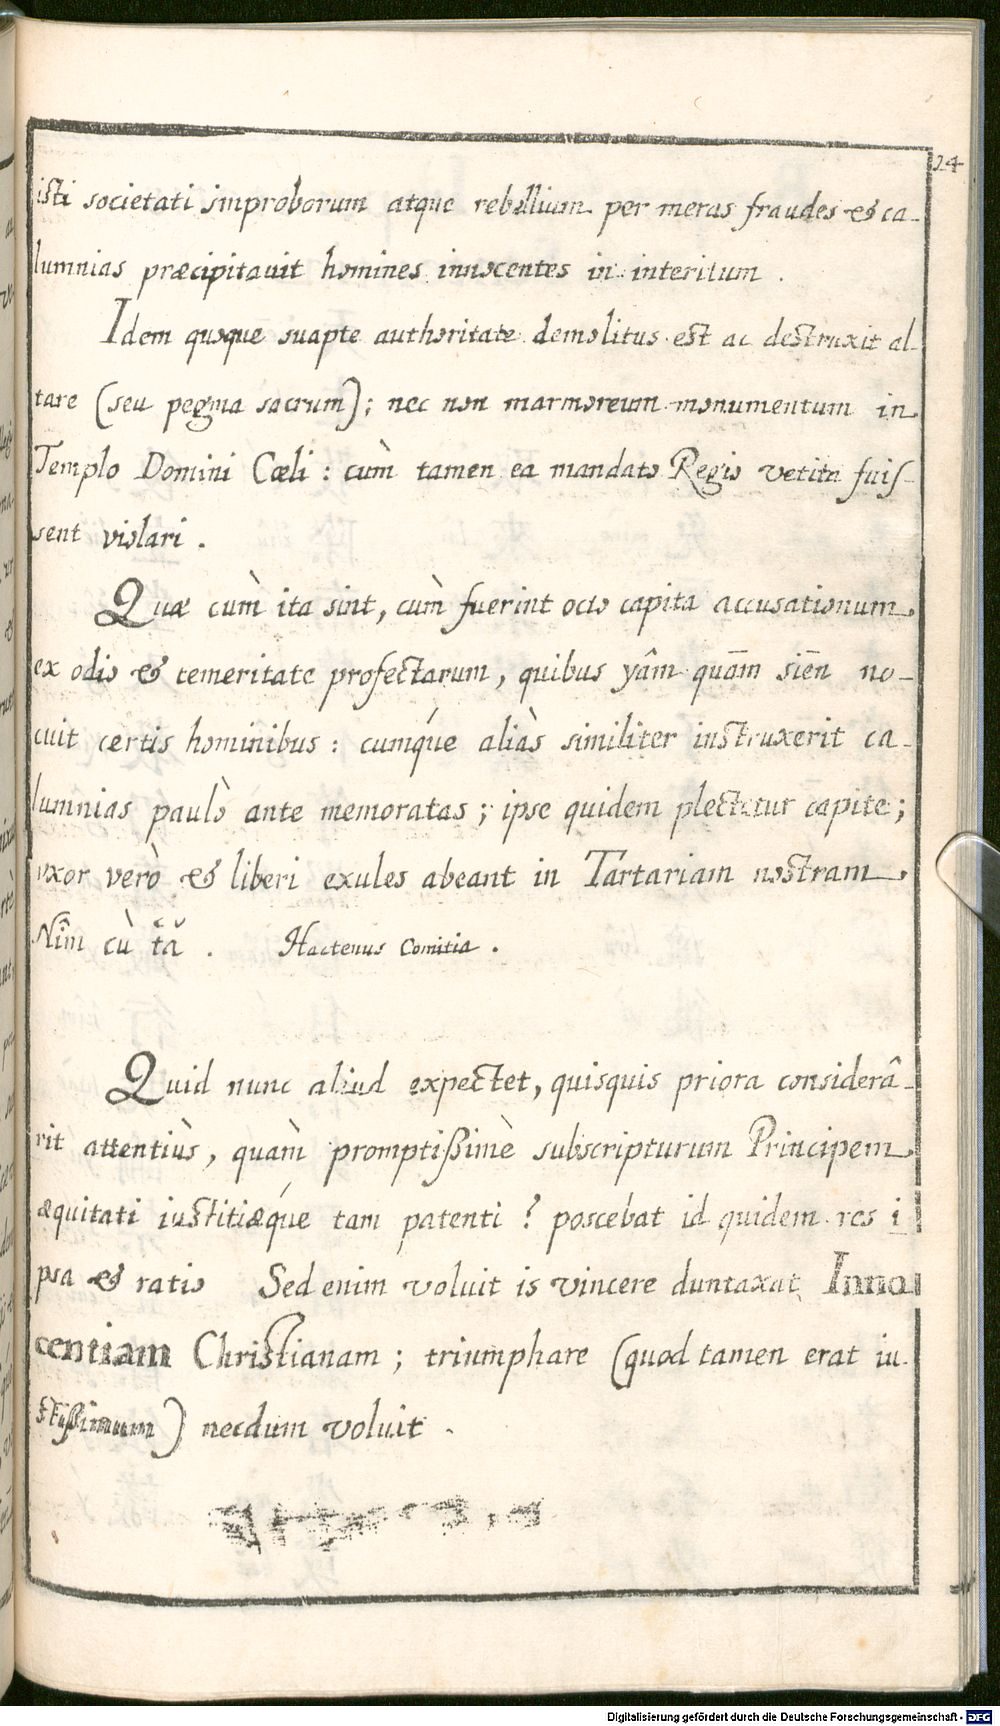 24
isti societati improborum atque rebellium per meras fraudes & ca-
lumnias præcipitauit homines innocentes in interitum .
Idem quoque suapte authoritate demolitus est ac destruxit al-
tare (seu pegma sacrum); nec non marmoreum monumentum in
Templo Domini Cœli : cùm tamen ea mandato Regio vetita fuis-
sent violari .
Quæ cùm ita sint, cùm fuerint octo capita accusationum
ex odio & temeritate profectarum, quibus yâm quām siēn no-
cuit certis hominibus : cumq́ue aliàs similiter instruxerit ca-
lumnias paulò ante memoratas ; ipse quidem plectetur capite ;
vxor verò & liberi exules abeant in Tartariam nostram
Nîm cù tă . Hactenus Comitia .
Quid nunc aliud expectet, quisquis priora considerâ-
rit attentiùs, quàm promptißimè subscripturum Principem
æquitati iustitiæq́ue tam patenti ? poscebat id quidem res i
psa & ratio Sed enim voluit is vincere duntaxat Inno
centiam Christianam ; triumphare (quod tamen erat iu-
stißimum) necdum voluit .
Digitalisierung gefördert durch die Deutsche Forschungsgemeinschaft - DFG